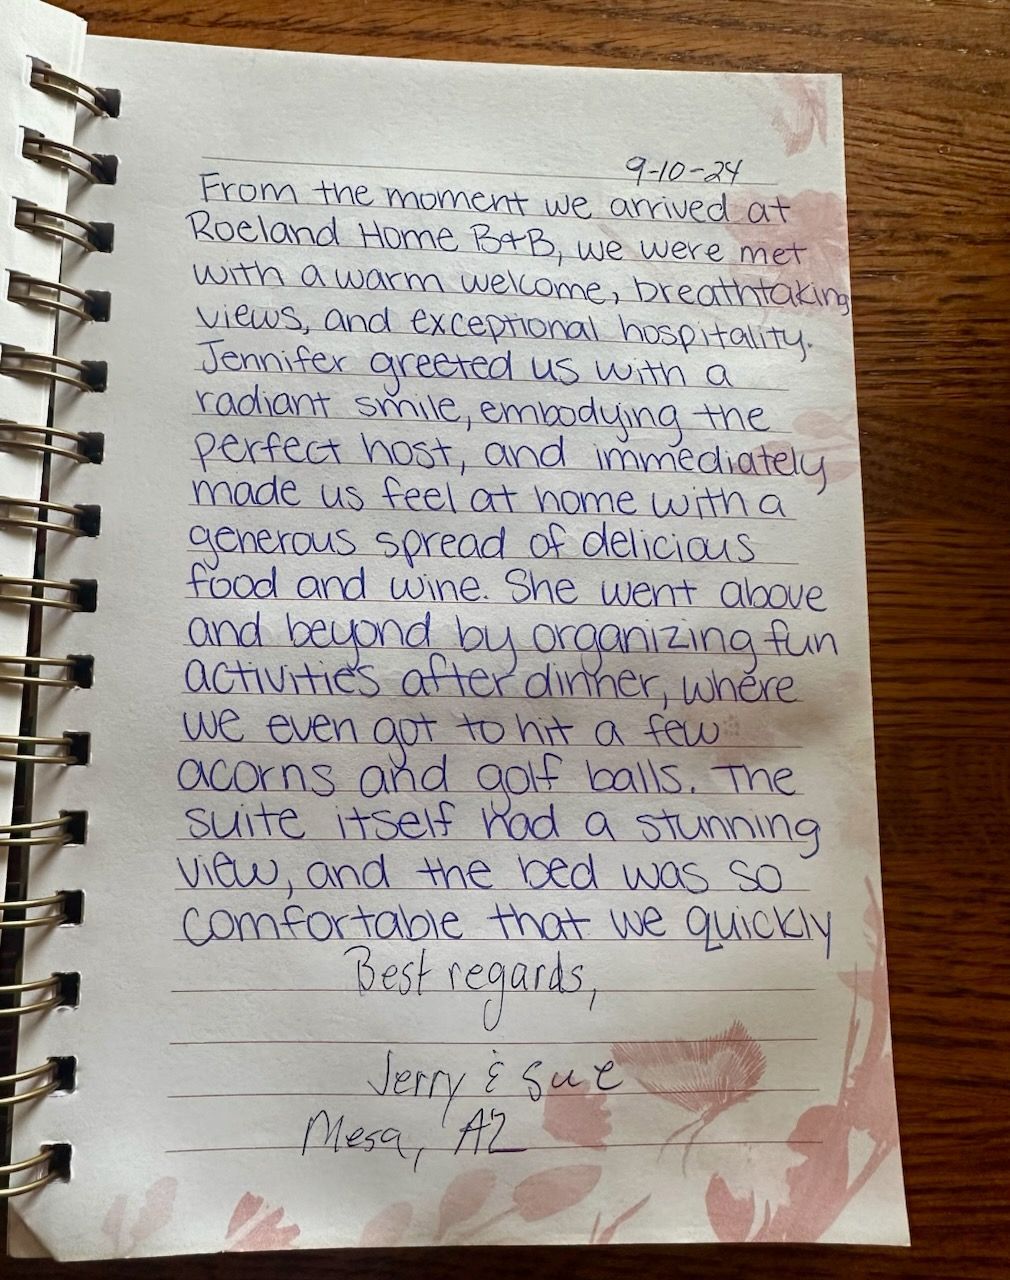 9-10-24
From the moment we arrived at
Roeland Home B+B, we were met
with a warm welcome, breathtaking
views, and exceptional hospitality.
Jennifer greeted us with a
radiant smile, embodying the
perfect host, and immediately
made us feel at home with a
generous spread of delicious
food and wine. She went above
and beyond by organizing fun
activities after dinner, where
we even got to hit a few
acorns and golf balls. The
suite itself had a stunning
view, and the bed was so
comfortable that we quickly
Best regards,
Jerry & Sue
Mesa, AZ